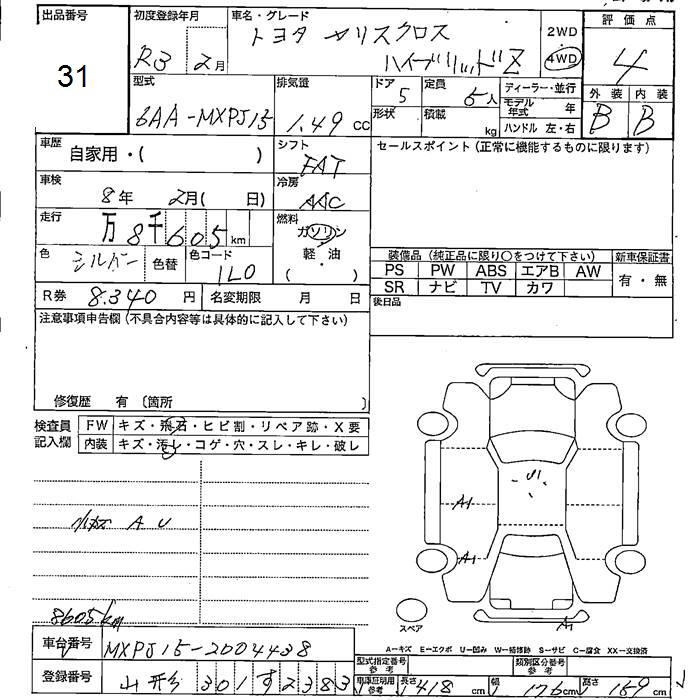 出品番号
31
初度登録年月
R3 2月
車名・グレード
トヨタ ヤリスクロス
ハイブリッドZ
2WD
4WD
評価点
4
外装 内装
B B
型式
6AA-MXPJ15
排気量
1.49 cc
ドア 5
形状
定員 5人
積載 kg
ディーラー・並行
モデル年式 年
ハンドル 左・右
車歴 自家用・( )
シフト
FAT
車検 8年 2月( 日)
冷房
AAC
走行 万8千605km
燃料
ガソリン
軽・油
( )
色 シルバー
色替
色コード 1L0
R券 8,340円
名変期限 月 日
セールスポイント(正常に機能するものに限ります)
装備品(純正品に限り○をつけて下さい)
新車保証書
PS PW ABS エアB AW
SR ナビ TV カワ
有・無
後日品
注意事項申告欄(不具合内容等は具体的に記入して下さい)
修復歴 有(箇所 )
検査員記入欄
FW キズ・飛石・ヒビ割・リペア跡・X要
内装 キズ・汚レ・コゲ・穴・スレ・キレ・破レ
小キズ A U
8605km
U1
A1
A1
A1
スペア
A−キズ E−エクボ U−凹み W−補修跡 S−サビ C−腐食 XX−交換済
車台番号 MXPJ15-2004438
登録番号 山形 301 す 2383
型式指定番号 参考
類別区分番号 参考
車庫証明用参考
長さ 418cm
幅 176cm
高さ 159cm